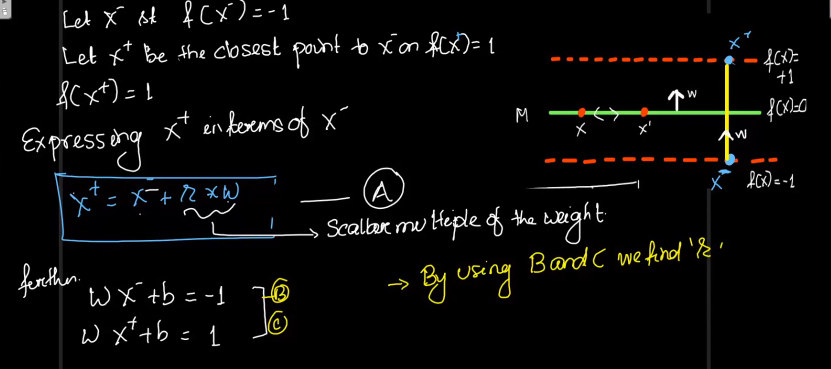 Let x⁻ st f(x⁻) = -1
Let x⁺ be the closest point to x⁻ on f(x) = 1
f(x⁺) = 1
Expressing x⁺ in terms of x⁻
x⁺ = x⁻ + r x w
A
Scalar multiple of the weight.
further.
W x⁻ + b = -1
B
W x⁺ + b = 1
C
→ By using B and C we find 'r'.
x⁺
f(x)= +1
w
M
f(x)=0
x
x'
w
x⁻
f(x)=-1